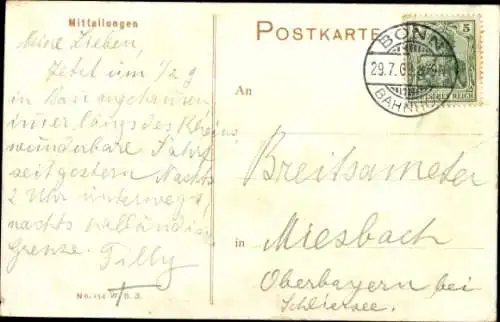 Mitteilungen
POSTKARTE
5
DEUTSCHES REICH
BONN
29.7.0
BAHNHOF
Meine Lieben,
Jetzt um 1/2 9
in Bonn angekommen
immer längs des Rheins
wunderbare Fahrt
seit gestern Nachts
2 Uhr unterwegs,
nachts holländische
Grenze. Tilly
No. 114 W. B. J.
An
Breitsameter
in Miesbach
Oberbayern bei
Schliersee.